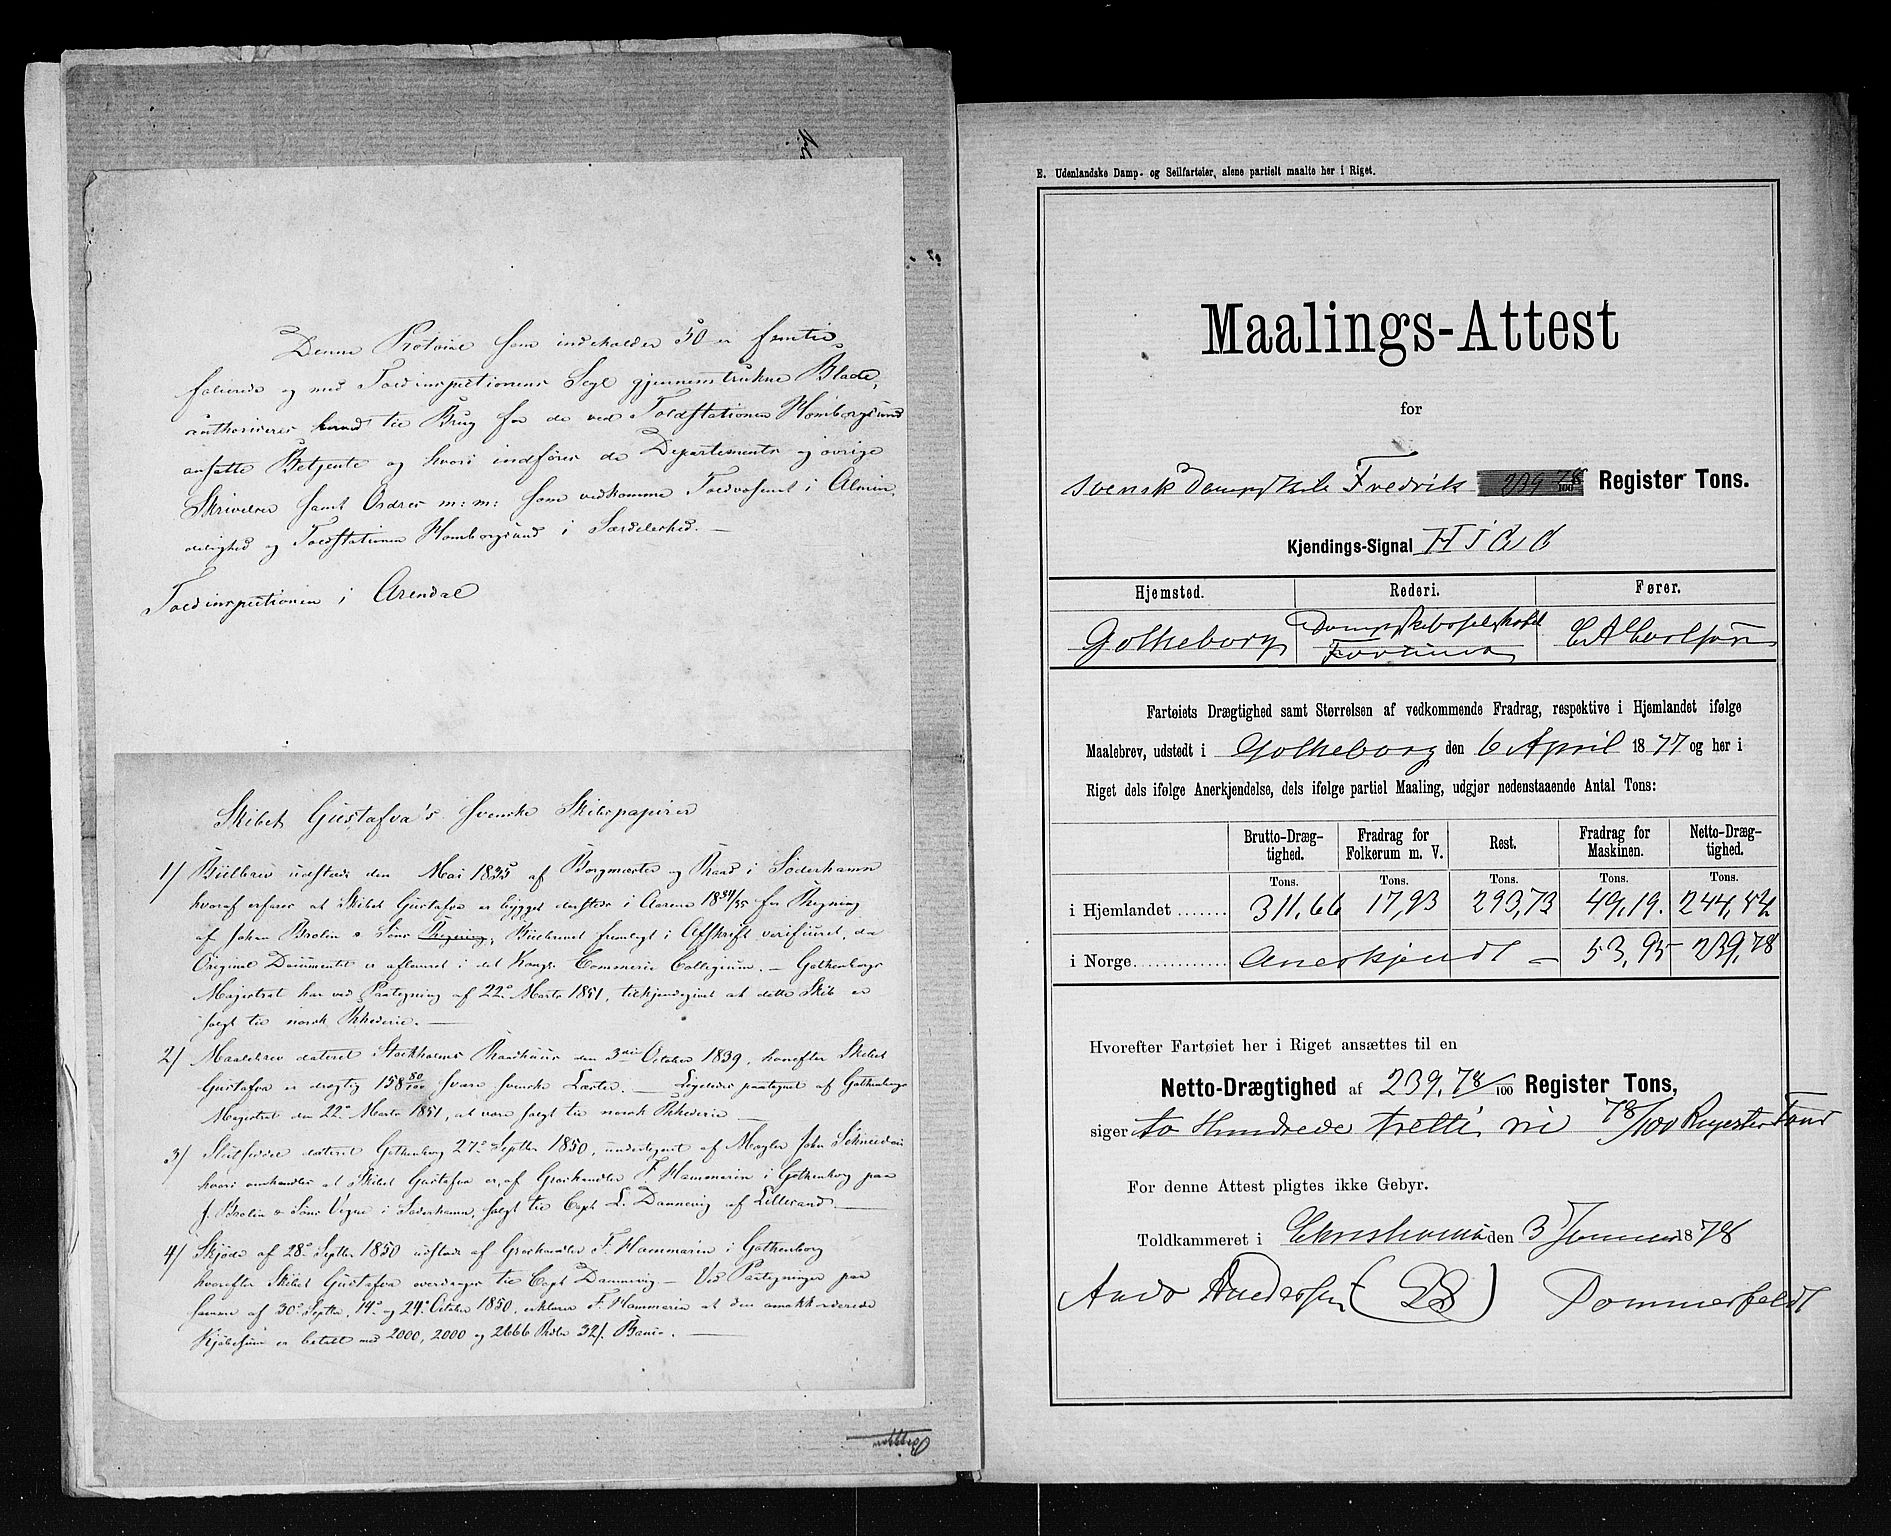 Denne Protocol som indeholder 50 er femtio
folierede og med Toldinspectionens Segl gjennemstrukne Blade,
authoriseres herved til Brug for de ved Toldstationen Homborgsund
ansatte Betjente og hvori indføres de Departements og øvrige
Skrivelser samt Ordres m: m: som vedkomme Toldvæsenet i Almin
delighed og Toldstationen Homborgsund i Særdeleshed. —
Toldinspectionen i Arendal
Skibet Gustafva's svenske Skibspapirer
1/ Biilbrev udstedt den Mai 1835 af Borgmester og Raad i Söderhamn
hvoraf erfares at Skibet Gustafva er bygget dersteds i Aarene 1834/35 for Regning
af Johan Brolin & Söns Regning, Biilbrevet fremlagt i Afskrift verificeret, da
Original Documentet er afleveret i det Kongl Commerce Collegium. — Gothenborgs
Magistrat har ved Paategning af 22de Marts 1851, tilkjendegivet at dette Skib er
solgt til norsk Rhederie. —
2/ Maalebrev dateret Stockholms Raadhuus den 3die October 1839, hvorefter Skibet
Gustafva er drægtig 158 80/100 svære svenske Læster. — Ligeledes paategnet af Gothenborgs
Magistrat den 22de Marts 1851, at være solgt til norsk Rhederie —
3/ Slutseddel dateret Gothenborg 27de Septbr 1850, undertegnet af Mægler John Schneidau
hvori omhandles at Skibet Gustafva er, af Groshandler F. Hammarin i Gothenborg paa
J. Brolin & Söns Vegne i Söderhamn, solgt til Capt L. Dannevig af Lillesand. —
4/ Skjöde af 28de Septbr 1850 udstedt af Groshandler F. Hammarin i Gothenborg
hvorefter Skibet Gustafva overdrages til Capt Dannevig — Ved Paategninger paa
samme af 30te Septbr, 14de og 24de October 1850, erklærer F. Hammarin at den omakkorderede
Kjöbesum er betalt med 2000, 2000 og 2666 Rdlr 32/. Banco. —
E. Udenlandske Damp- og Seilfartøier, alene partielt maalte her i Riget.
Maalings-Attest
for
svensk Dampskib Fredrik 239 78/100 Register Tons.
Kjendings-Signal
Hjemsted. Rederi. Fører.
Gotheborg Dampskibsselskabet E A Carlson
Fortuna
Fartøiets Drægtighed samt Størrelsen af vedkommende Fradrag, respektive i Hjemlandet ifølge
Maalebrev, udstedt i Gotheborg den 6 April 1877 og her i
Riget dels ifølge Anerkjendelse, dels ifølge partiel Maaling, udgjør nedenstaaende Antal Tons:
Brutto-Dræg-tighed. Fradrag for Folkerum m. V. Rest. Fradrag for Maskinen. Netto-Dræg-tighed.
Tons. Tons. Tons. Tons. Tons.
i Hjemlandet ....... 311,66 17,93 293,73 49,19. 244,54
i Norge.............. Anerkjendt — 53,95 239,78
Hvorefter Fartøiet her i Riget ansættes til en
Netto-Drægtighed af 239,78/100 Register Tons,
siger to Hundrede tretti ni 78/100 Register Tons
For denne Attest pligtes ikke Gebyr.
Toldkammeret i Christiania den 3 Januar 1878
Anders Andersen (LS) Sommerfeldt